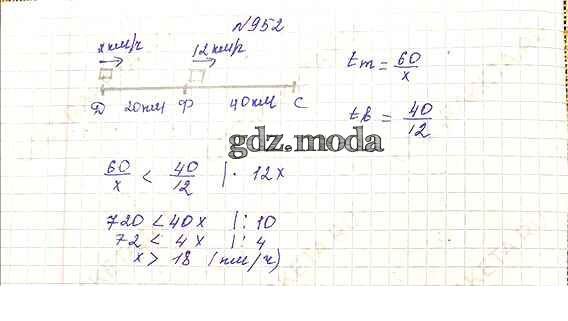 №952
x км/ч 12 км/ч
Д 20км Ф 40км С
tт = 60/x
tв = 40/12
gdz.moda
60/x < 40/12 | · 12x
720 < 40x | : 10
72 < 4x | : 4
x > 18 (км/ч)